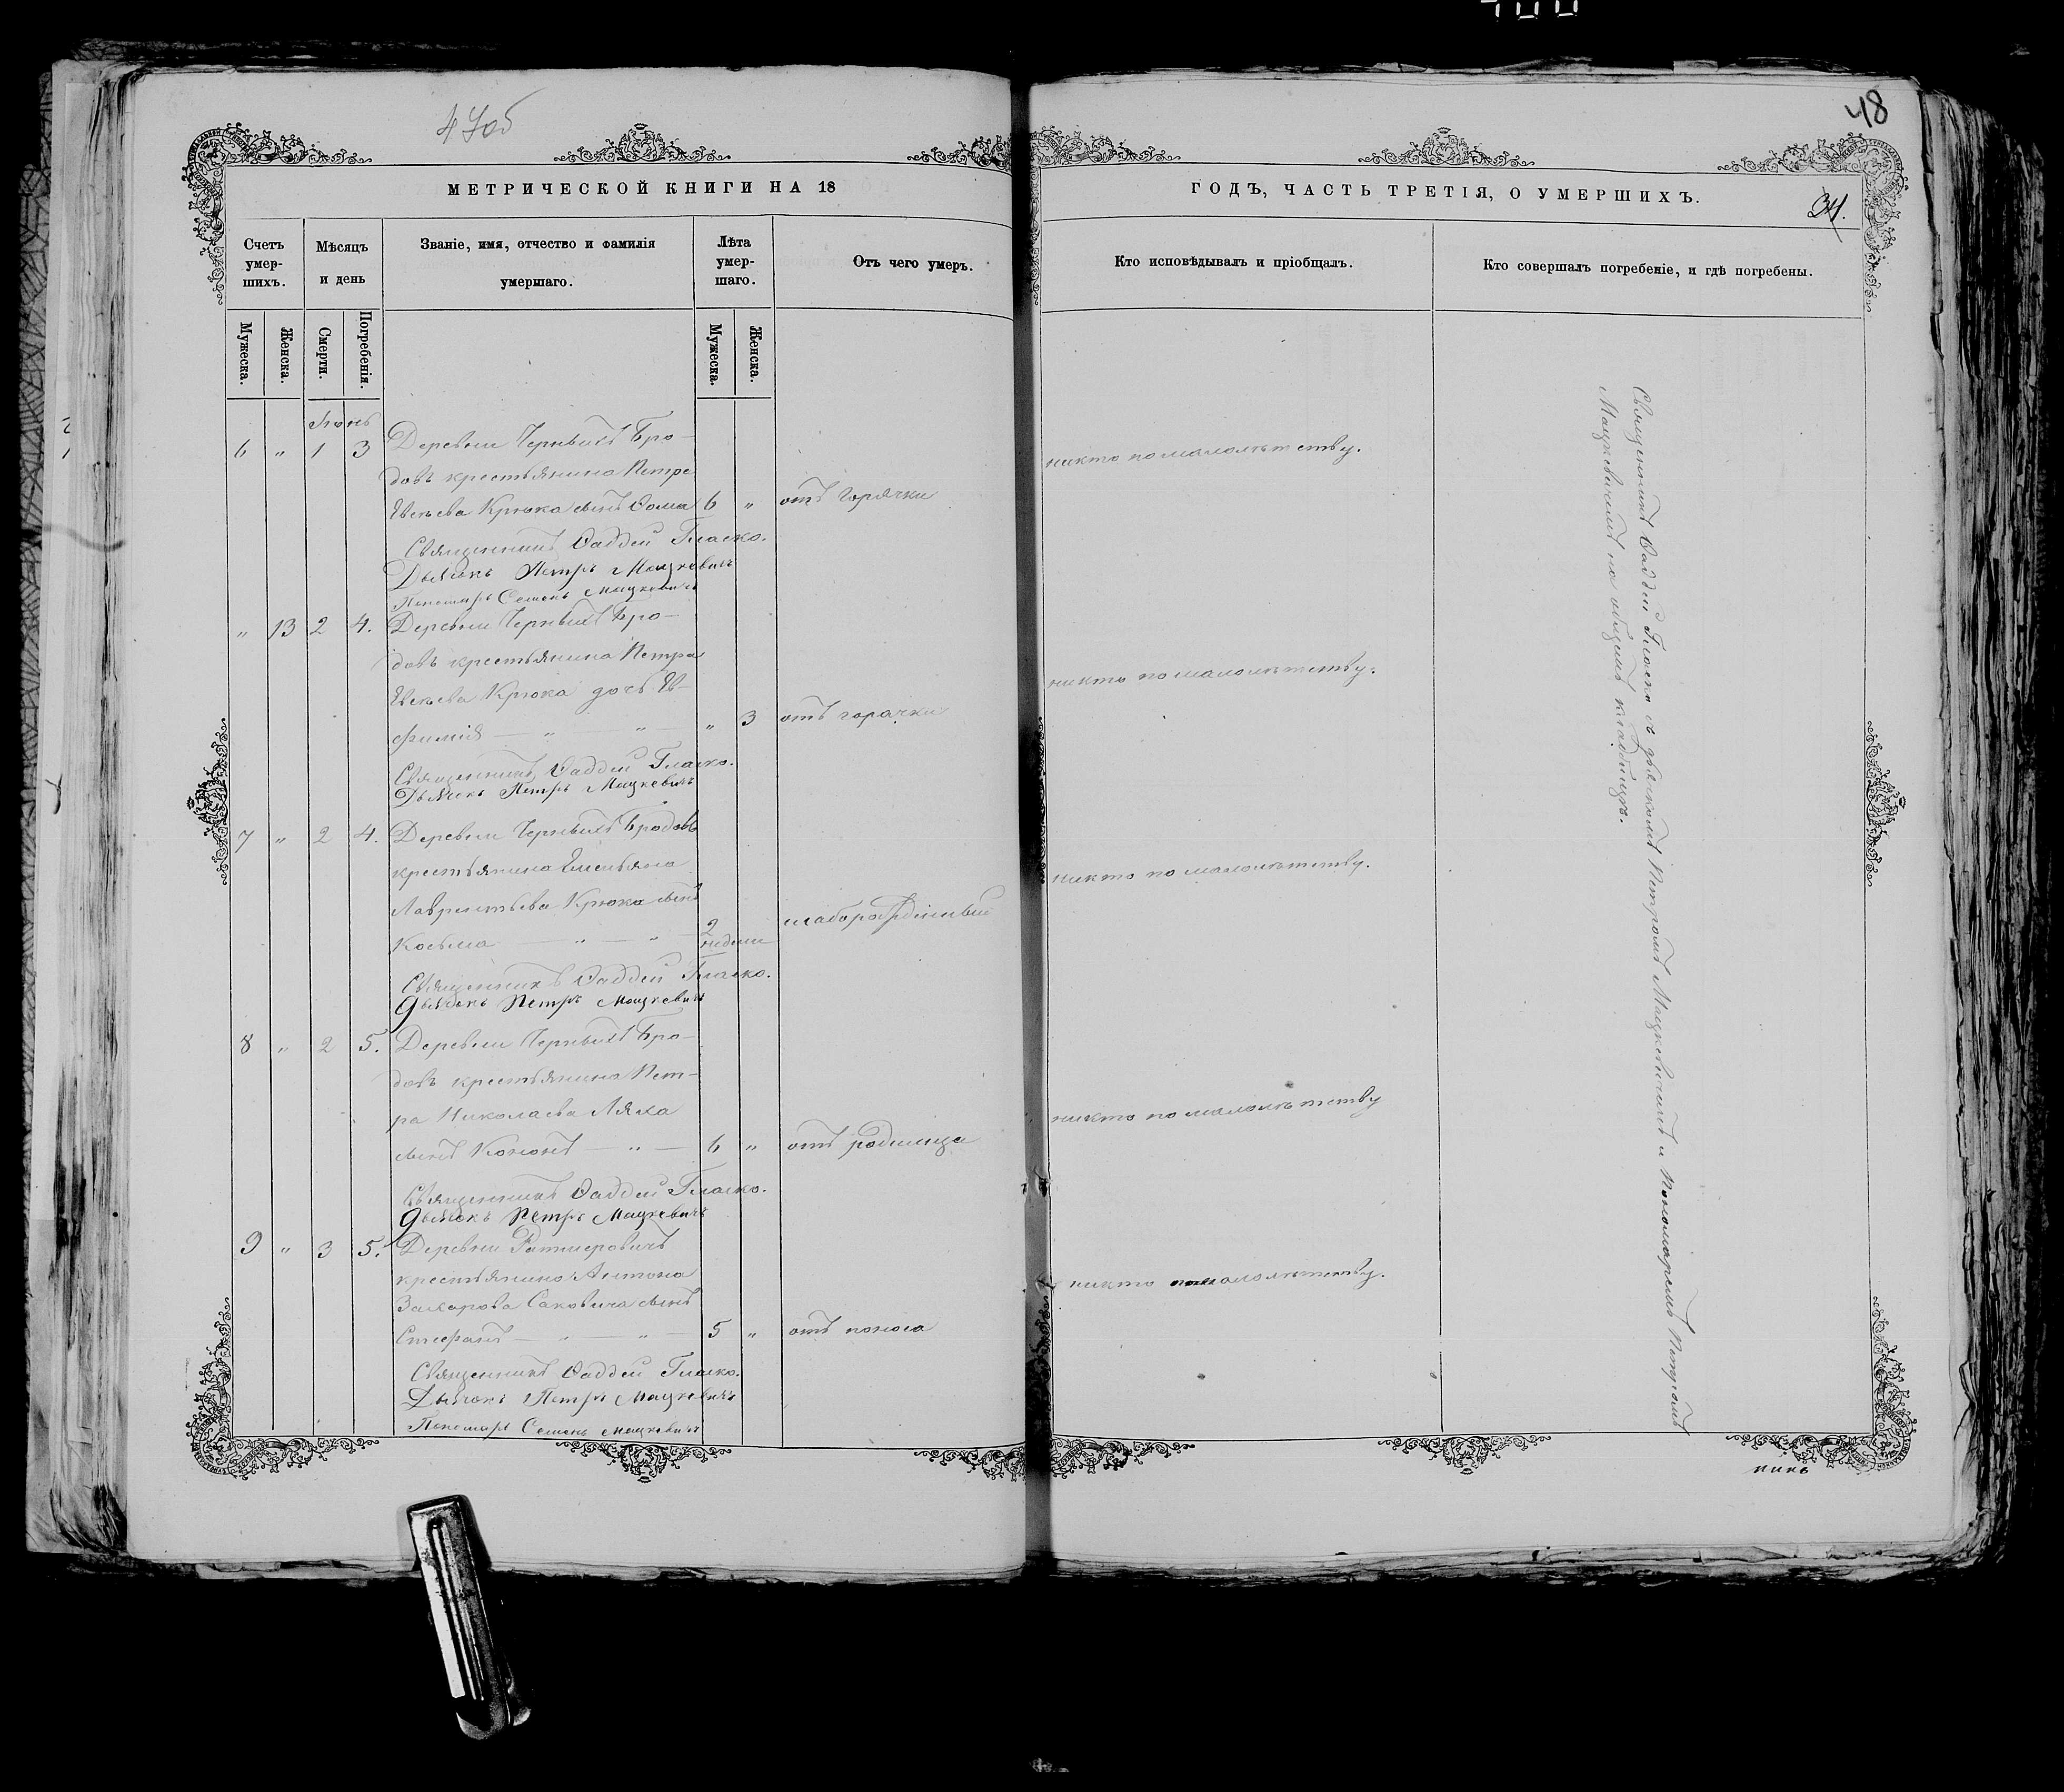 47об
МЕТРИЧЕСКОЙ КНИГИ НА 18
Счетъ умер-шихъ.
Мѣсяцъ и день
Званіе, имя, отчество и фамилія умершаго.
Лѣта умер-шаго.
Отъ чего умеръ.
Мужеска.
Женска.
Смерти.
Погребенія.
Мужеска.
Женска.
Іюнь
6 " 1 3 Деревни Черныхъ Бро-
довъ крестьянина Петра
Крюка сынъ Ѳома 6 " отъ горячки
Священникъ Ѳаддей Гласко.
Дьячокъ Петръ Мацкевичъ
Пономарь Семенъ Мацкевичъ
" 13 2 4. Деревни Черныхъ Бро-
довъ крестьянина Петра
Крюка дочь Ев-
фимія — " — " — " 3 отъ горячки
Священникъ Ѳаддей Гласко.
Дьячокъ Петръ Мацкевичъ
7 " 2 4. Деревни Черныхъ Бродовъ
крестьянина Емельяна
Лаврентьева Крюка сынъ
Косьма — " — " — 2 недели слаборожденный
Священникъ Ѳаддей Гласко.
Дьячокъ Петръ Мацкевичъ
8 " 2 5. Деревни Черныхъ Бро-
довъ крестьянина Пет-
ра Николаева Ляха
сынъ Кононъ — " — 6 " отъ родимца
Священникъ Ѳаддей Гласко.
Дьячокъ Петръ Мацкевичъ
9 " 3 5. Деревни Ратмеровичъ
крестьянина Антона
Захарова Саковича сынъ
Стефанъ — " — " — 5 " отъ поноса
Священникъ Ѳаддей Гласко.
Дьячокъ Петръ Мацкевичъ
Пономарь Семенъ Мацкевичъ
48
ГОДЪ, ЧАСТЬ ТРЕТІЯ, О УМЕРШИХЪ.
34.
Кто исповѣдывалъ и пріобщалъ.
Кто совершалъ погребеніе, и гдѣ погребены.
никто по малолѣтству.
никто по малолѣтству.
никто по малолѣтству.
никто по малолѣтству
никто по малолѣтству.
Священникъ Ѳаддей Гласко съ дьячкомъ Петромъ Мацкевичемъ и Пономаремъ Петромъ
Мацкевичемъ на общемъ кладбищѣ.